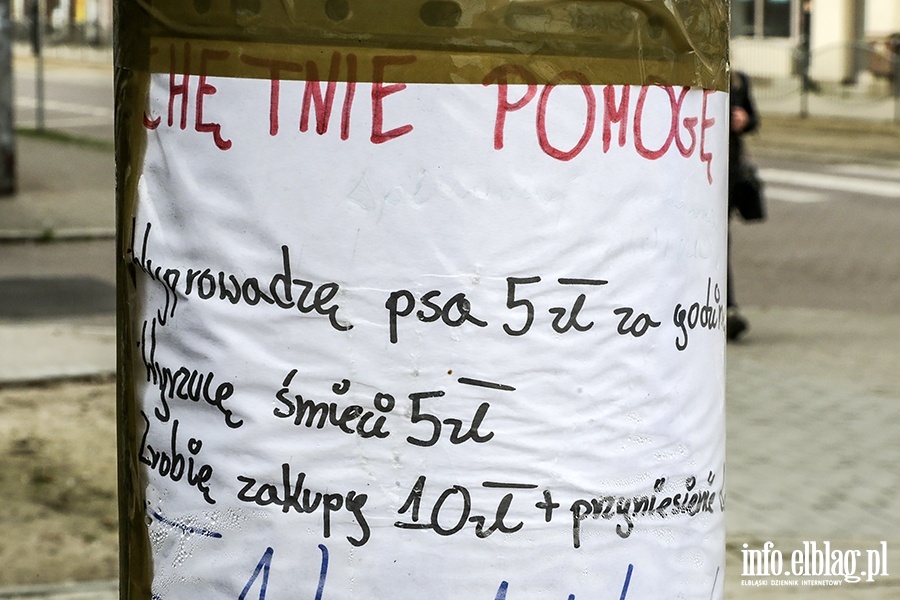 CHĘTNIE POMOGĘ
Wyprowadzę psa 5zł za godzin
Wyrzucę śmieci 5zł
Zrobię zakupy 10zł + przyniesienie
info.elblag.pl
ELBLĄSKI DZIENNIK INTERNETOWY